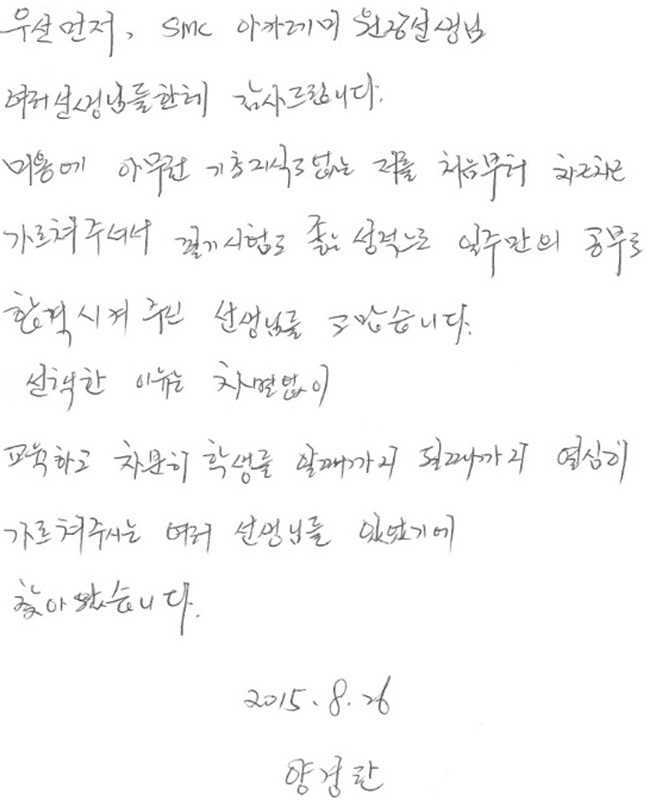 우선먼저, SMC 아카데미 원장선생님
여러선생님들한테 감사드립니다.
미용에 아무런 기초지식도없는 저를 처음부터 차근차근
가르쳐주셔서 필기시험도 좋은 성적으로 일주만의 공부로
합격시켜 주신 선생님들 고맙습니다.
선택한 이유는 차별없이
교육하고 차분히 학생들 알때까지 될때까지 열심히
가르쳐주시는 여러 선생님들 있었기에
찾아왔습니다.
2015. 8. 26
양경란